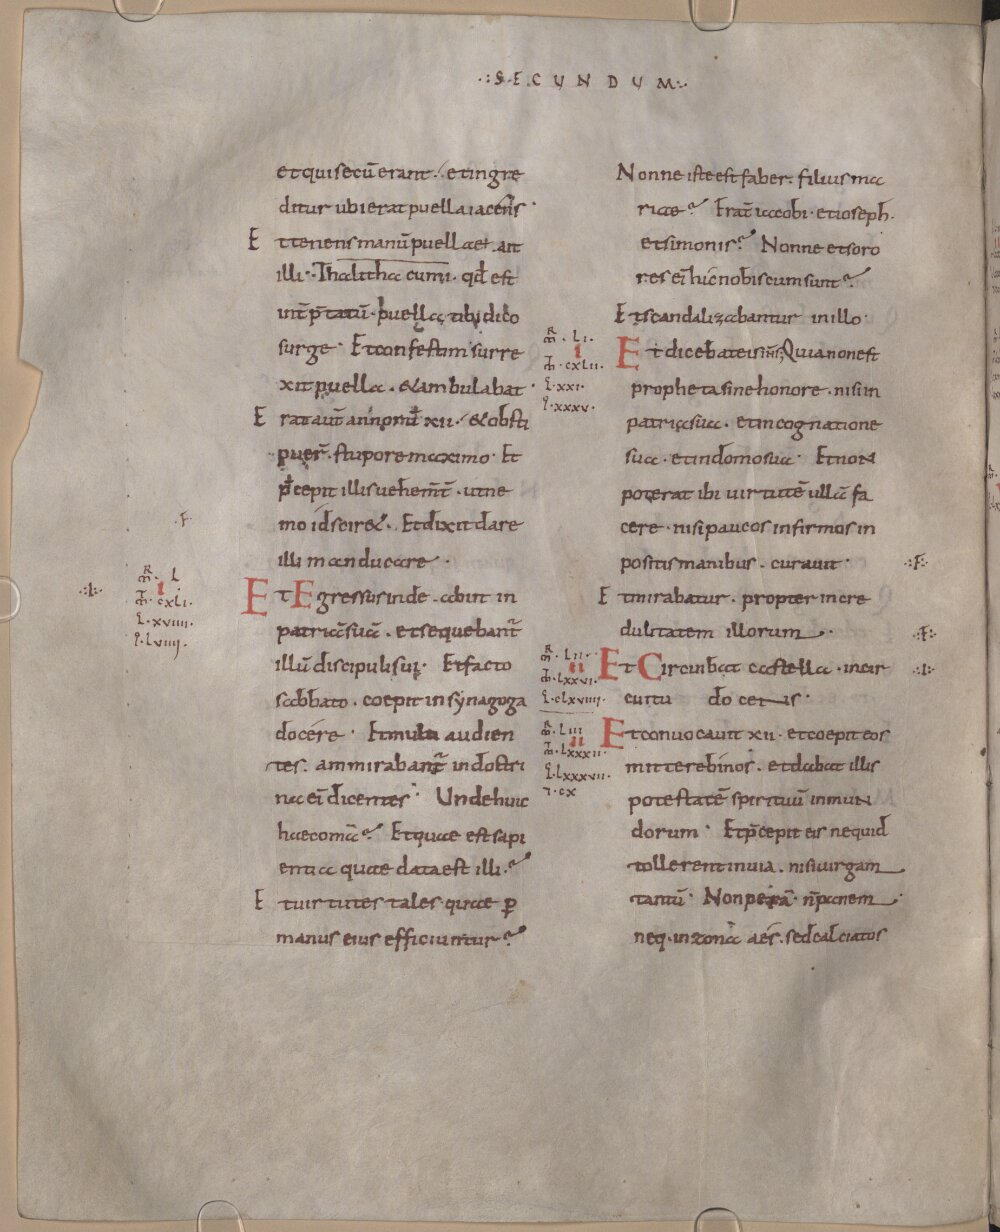 ·:SECUNDUM:·
et qui secū erant. et ingre
ditur ubi erat puella iacens·
Et tenens manū puellae. ait
illi· Thalitha cumi. qđ est
int̄p̄tatū· puella tibi dico
surge· Et confestim surre
xit puella. & ambulabat·
Erat aut̄ annorū xii. & obsti
puer̄. stupore maximo· Et
p̄cepit illis uehem̄t̄. ut ne
mo id sciret. Et dixit dare
illi manducare·
·F·
·:I:·
m̄· L
I
Io· CXLI·
L·XVIIII·
LVIIII·
Et Egressus inde. abiit in
patriā suā. et sequebant̄
illū discipuli sui· Et facto
sabbato. coepit in synagoga
docere· Et multi audien
tes. ammirabant̄ in doctri
na ei dicentes· Unde huic
haec omā? Et quae est sapi
entia quae data est illi?
Et uirtutes tales quae p̄
manus eius efficiuntur?
Nonne iste est faber. filius ma
riae? Frat̄ iacobi. et ioseph.
et simonis? Nonne et soro
res ei hic nobiscum sunt?
Et scandalizabantur in illo·
m̄· LI·
I
Io· CXLII·
L·XXI·
I·XXXV·
Et dicebat eis iħs; Quia non est
propheta sine honore. nisi in
patria sua. et in cognatione
sua. et in domo sua· Et non
poterat ibi uirtutē ullā fa
cere. nisi paucos infirmos in
positis manibus. curauit·
·:F:·
Et mirabatur. propter incre
dulitatem illorum·
·:F:·
m̄· LII·
II
m̄·LXXVI·
L·CLXVIIII·
Et Circuibat castella. incir
·:I:·
cuitu docens·
m̄· LIII
II
m̄·LXXXII·
L·LXXXVII·
I·CX
Et conuocauit xii. et coepit eos
mittere binos. et dabat illis
potestatē spirituū inmun
dorum· Et p̄cepit eis nequid
tollerent in uia. nisi uirgam
tantū· Non perā n̄ panem
neq. in zona aes. sed calciatos